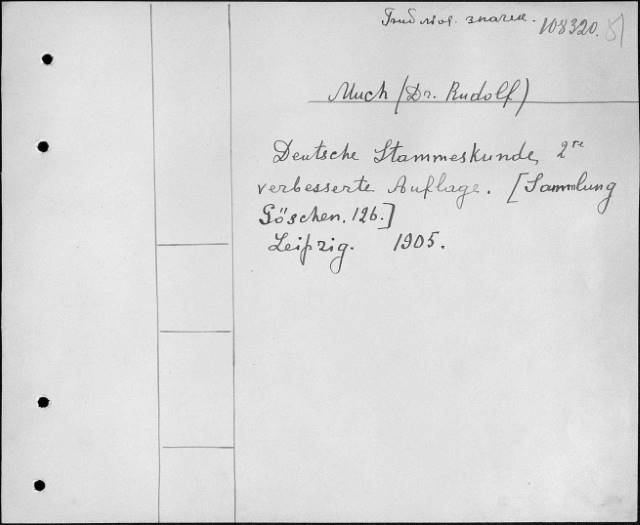 108320.
Much (Dr. Rudolf)
Deutsche Stammeskunde, 2re
verbesserte Auflage. [Sammlung
Göschen. 126.]
Leipzig. 1905.